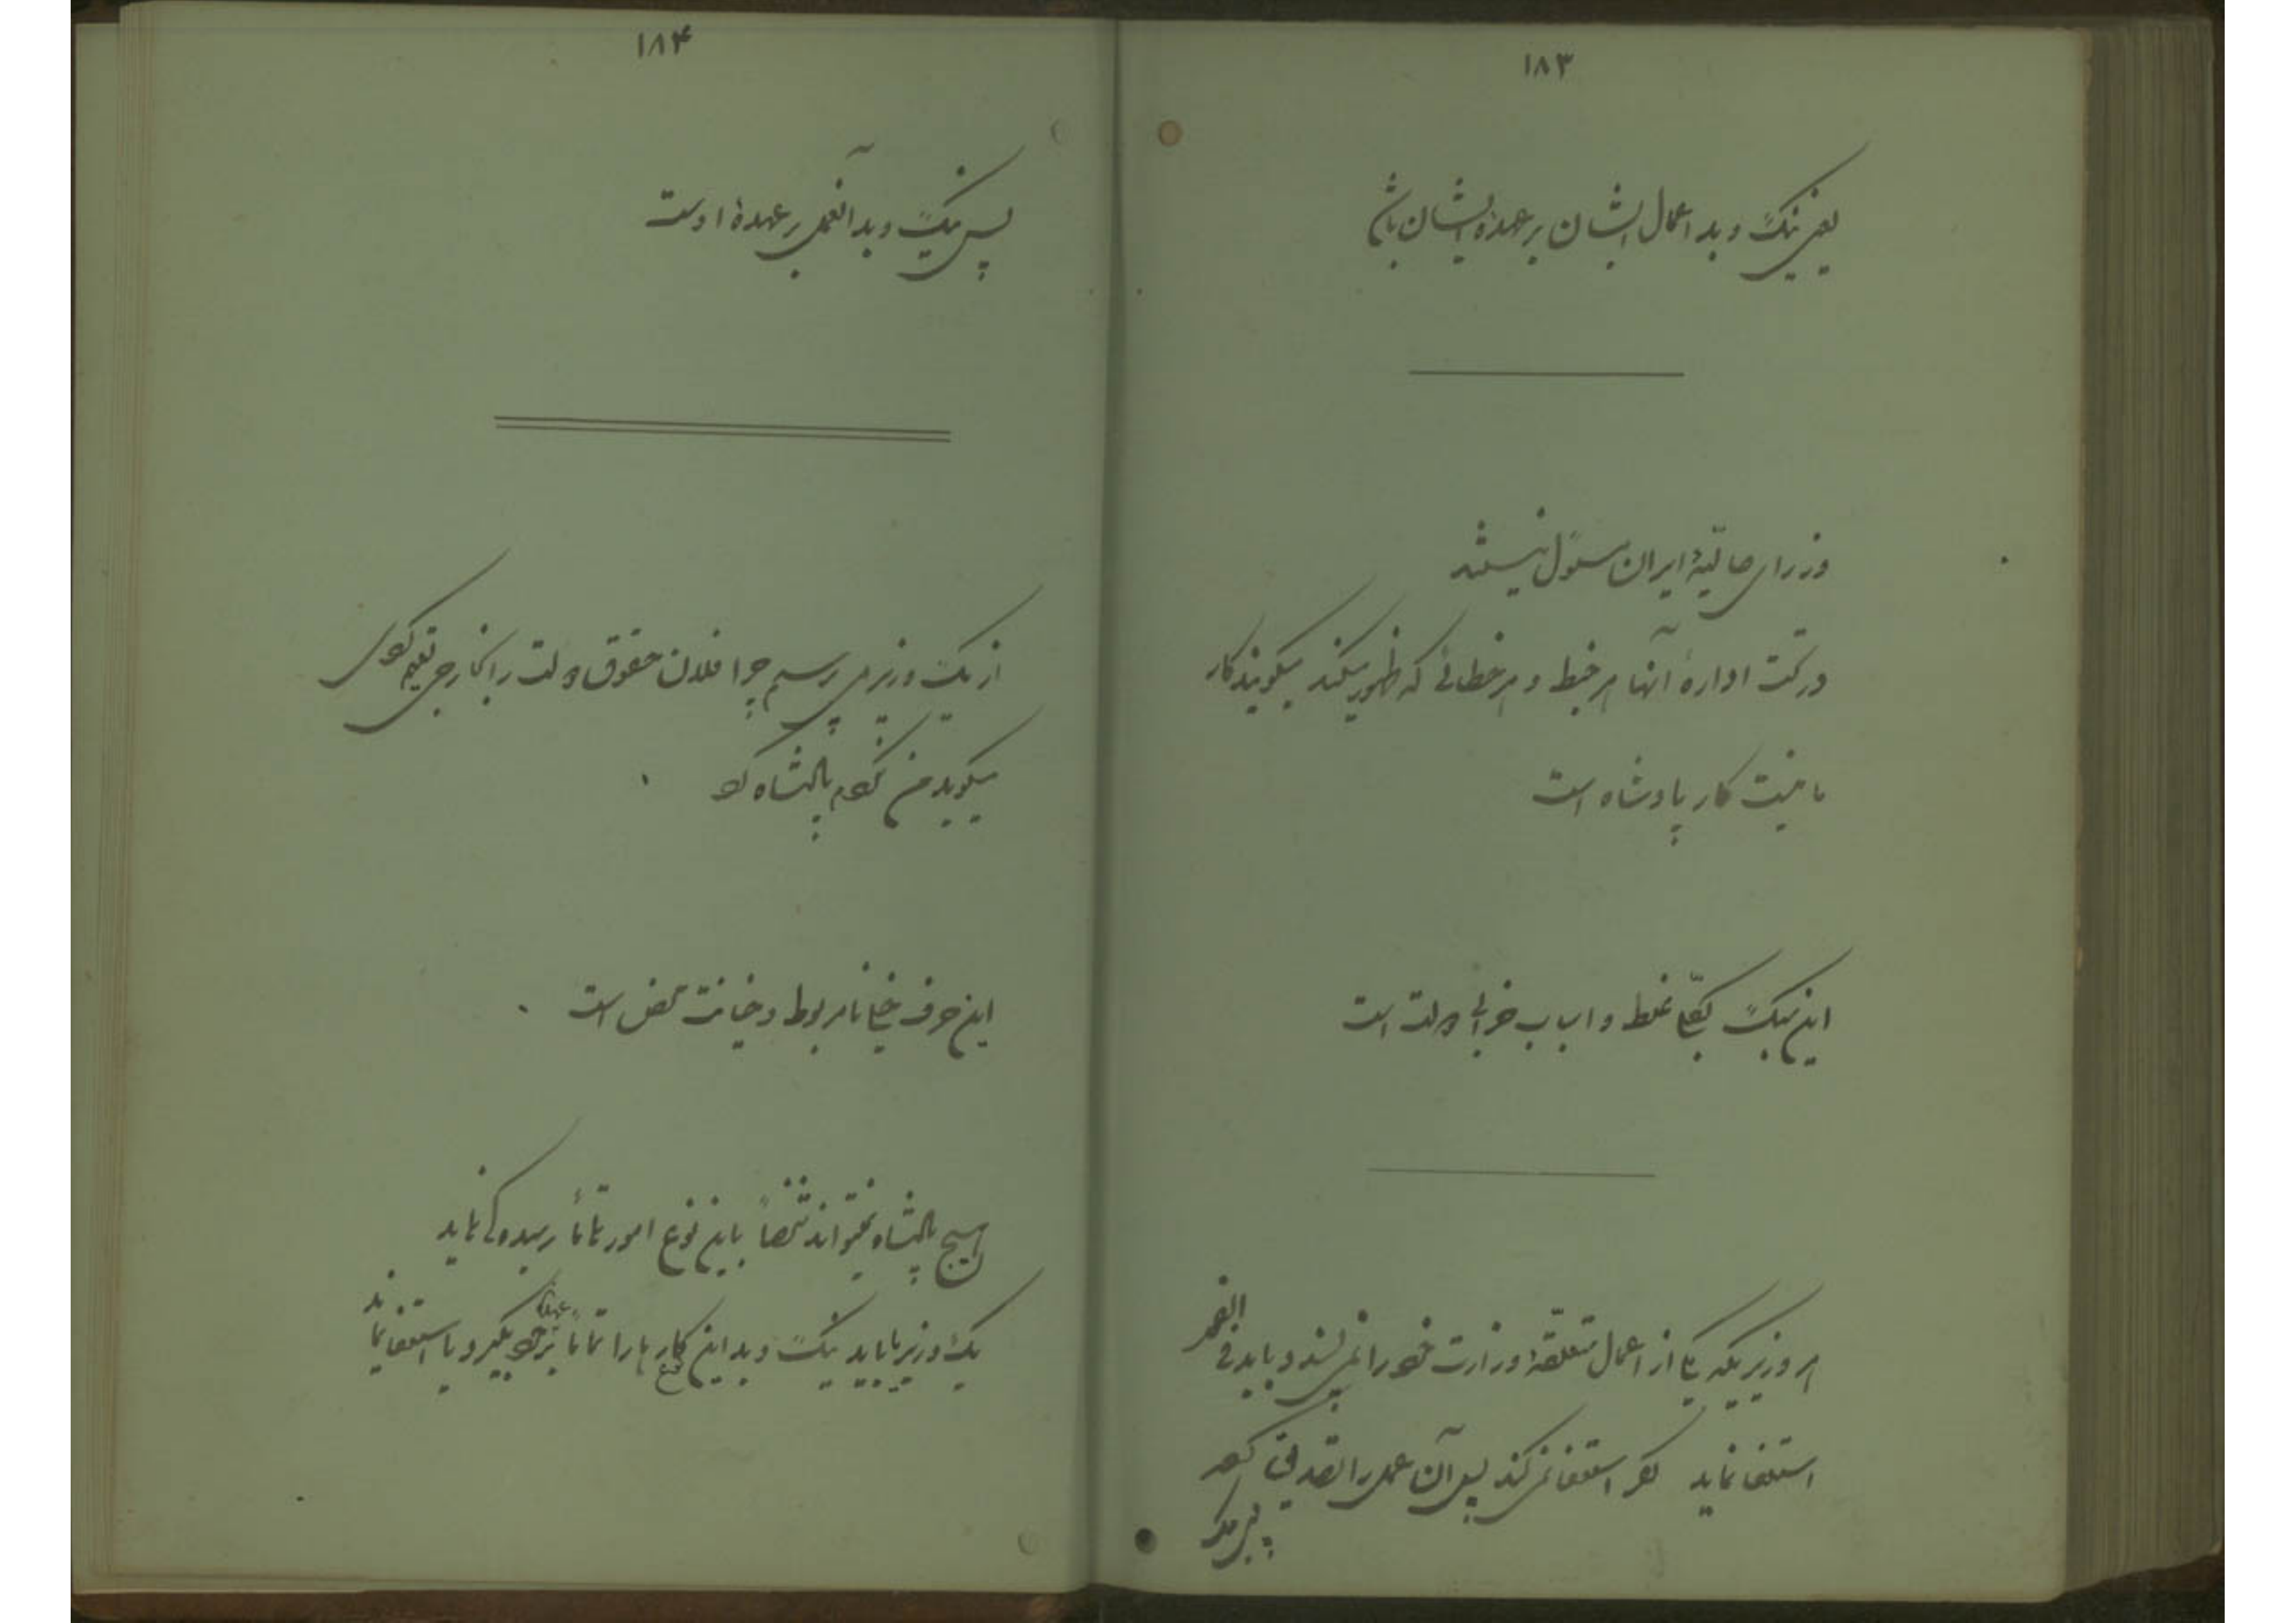 ۱۸۳
یعنی نیک و بد اعمال ایشان بر عهدهٔ ایشان باشد
وزرای حالیّهٔ ایران مسئول نیستند
در تحت ادارهٔ آنها هر خبط و هر خطائی که ظهور میکند میگویند کار
ما نیست کار پادشاه است
این سبک بکلّی غلط و اسباب خرابی دولت است
هر وزیریکه یکی از اعمال متعلّقهٔ وزارت خود را نمی‌پسندد باید فی الفور
استعفا نماید اگر استعفا نمی‌کند پس آن عمل را تصدیق کرده
۱۸۴
پس نیک و بد آنعمل بر عهدهٔ اوست
از یک وزیر می پرسیم چرا فلان حقوق دولت را بخارجی تقدیم کردی
میگوید من نکردم پادشاه کرد
این حرف خیلی نامربوط و خیانت محض است
هیچ پادشاه نمیتواند شخصاً باین نوع امور تماماً رسیدگی نماید
یک وزیر یا باید نیک و بد این کارها را تماماً بر عهدهٔ خود بگیرد و یا استعفا نماید